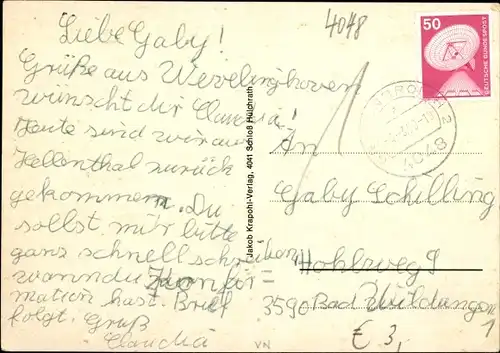 4048
Liebe Gaby!
Grüße aus Wevelinghoven
wünscht dir Claudia!
Heute sind wir aus
Hellenthal zurück
gekommen. Du
sollst mir bitte
ganz schnell schreiben,
wann du Konfir=
mation hast. Brief
folgt. Gruß
Claudia
Jakob Krapohl-Verlag, 4041 Schloß Hülchrath
50
DEUTSCHE BUNDESPOST
4048
An
Gaby Schilling
Hohlweg 9
3590 Bad Wildungen
1
€ 3,
VN